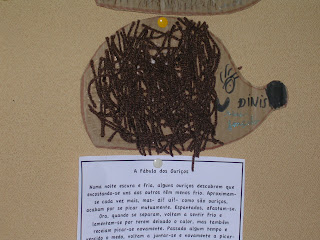 DINIS
A Fábula dos Ouriços
Numa noite escura e fria, alguns ouriços descobrem que
encostando-se uns aos outros têm menos frio. Aproximam-
se cada vez mais, mas- ai! ui!- como são ouriços,
acabam por se picar mutuamente. Espantados, afastam-se.
Ora, quando se separam, voltam a sentir frio e
lamentam-se por terem deixado o calor, mas também
receiam picar-se novamente. Passado algum tempo e
vencido o medo, voltam a juntar-se e novamente a picar-